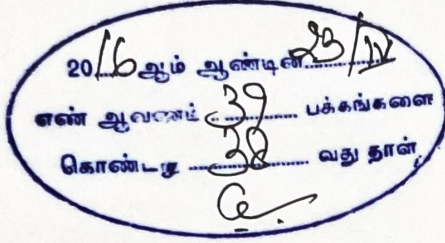 2016 ஆம் ஆண்டின் 23/IV
எண் ஆவணம் 39 பக்கங்களை
கொண்டது 38 வது தாள்